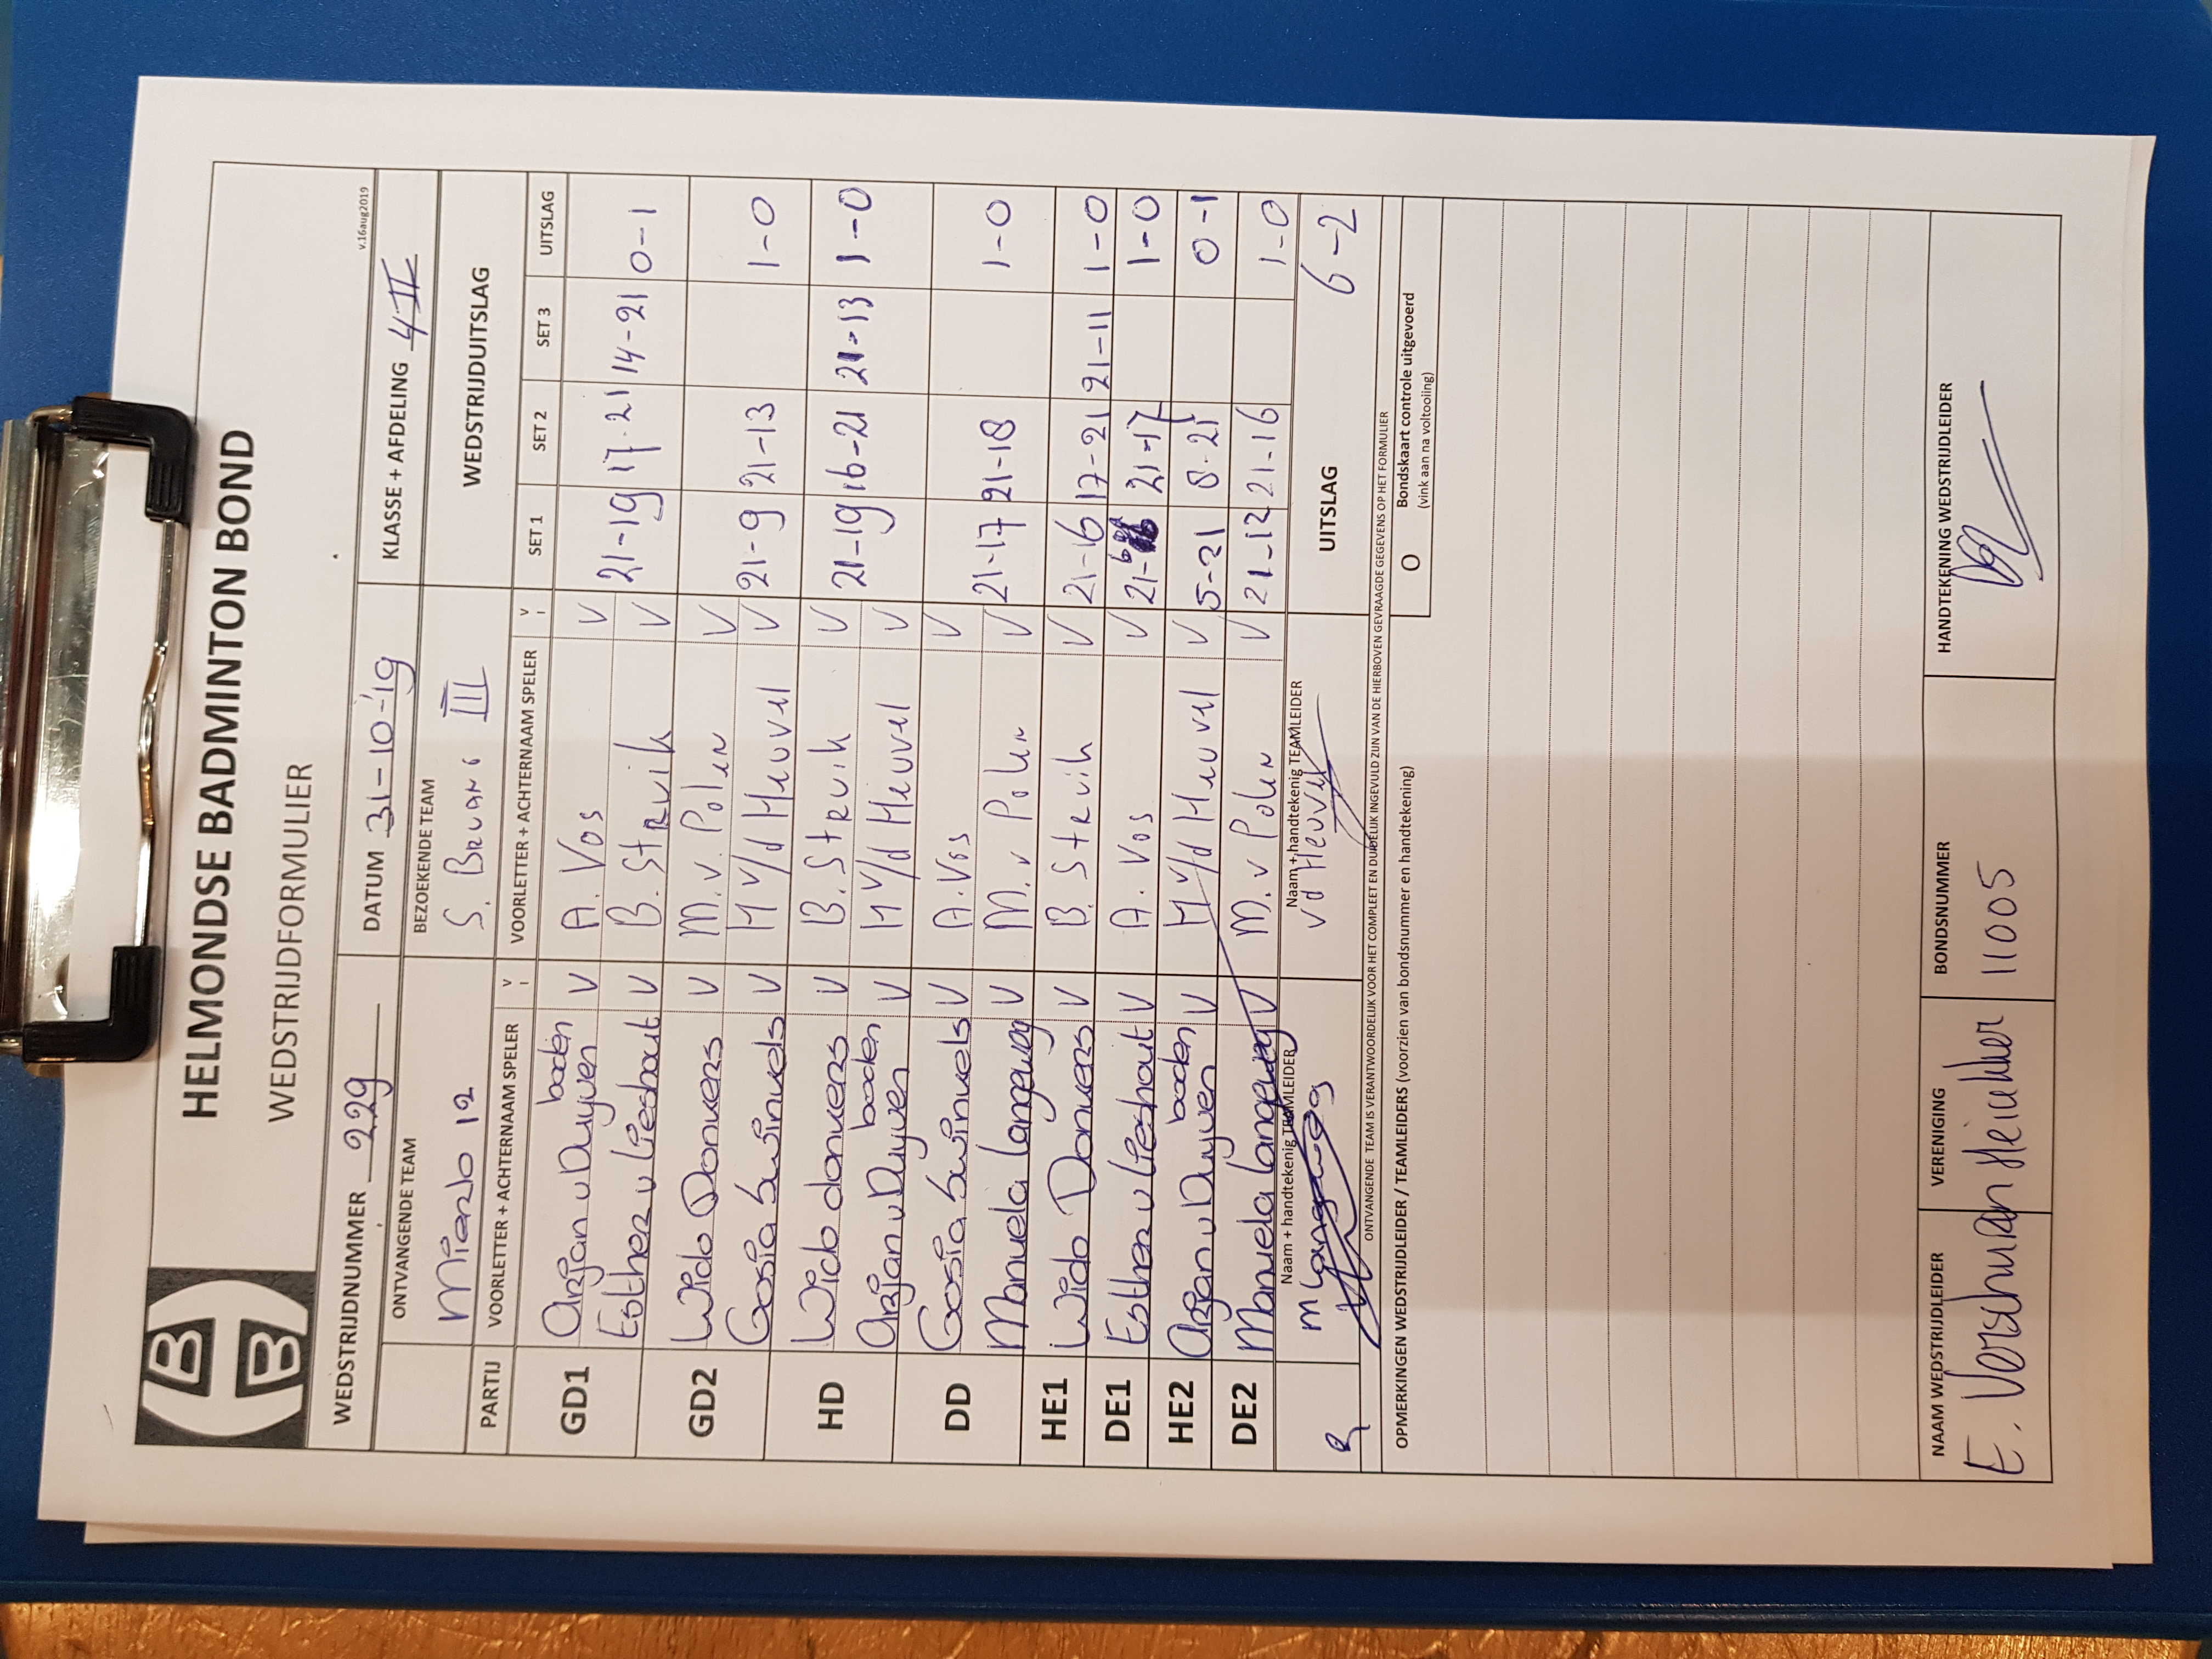 HELMONDSE BADMINTON BOND
WEDSTRIJDFORMULIER
v.16aug2019
WEDSTRIJDNUMMER 229 DATUM 31-10-'19 KLASSE + AFDELING 4 II
ONTVANGENDE TEAM BEZOEKENDE TEAM WEDSTRIJDUITSLAG
Mierlo 12 S. Brvans III
PARTIJ VOORLETTER + ACHTERNAAM SPELER V VOORLETTER + ACHTERNAAM SPELER V SET 1 SET 2 SET 3 UITSLAG
boden
GD1 Arjan v Duyven V A. Vos V
Esther v Lieshout V B. Struik V 21-19 17-21 14-21 0-1
GD2 Wido Donkers V M. v. Polen V
Gosia Swinkels V M v/d Heuvel V 21-9 21-13 1-0
HD Wido donkers V B. Struik V
boden
Arjan v Duyven V M v/d Heuvel V 21-19 16-21 21-13 1-0
DD Gosia Swinkels V A. Vos V
Manuela Langeweg V M. v Polen V 21-17 21-18 1-0
HE1 Wido Donkers V B. Struik V 21-16 17-21 21-11 1-0
DE1 Esther v Lieshout V A. Vos V 21-6 21-17 1-0
boden
HE2 Arjan v Duyven V M v/d Heuvel V 5-21 8-21 0-1
DE2 Manuela Langeweg V M. v Polen V 21-12 21-16 1-0
Naam + handtekenig TEAMLEIDER Naam + handtekenig TEAMLEIDER UITSLAG 6-2
M Langeweg vd Heuvel
ONTVANGENDE TEAM IS VERANTWOORDELIJK VOOR HET COMPLEET EN DUIDELIJK INGEVULD ZIJN VAN DE HIERBOVEN GEVRAAGDE GEGEVENS OP HET FORMULIER
OPMERKINGEN WEDSTRIJDLEIDER / TEAMLEIDERS (voorzien van bondsnummer en handtekening) O Bondskaart controle uitgevoerd
(vink aan na voltooiing)
NAAM WEDSTRIJDLEIDER VERENIGING BONDSNUMMER HANDTEKENING WEDSTRIJDLEIDER
E. Verschuren 11005